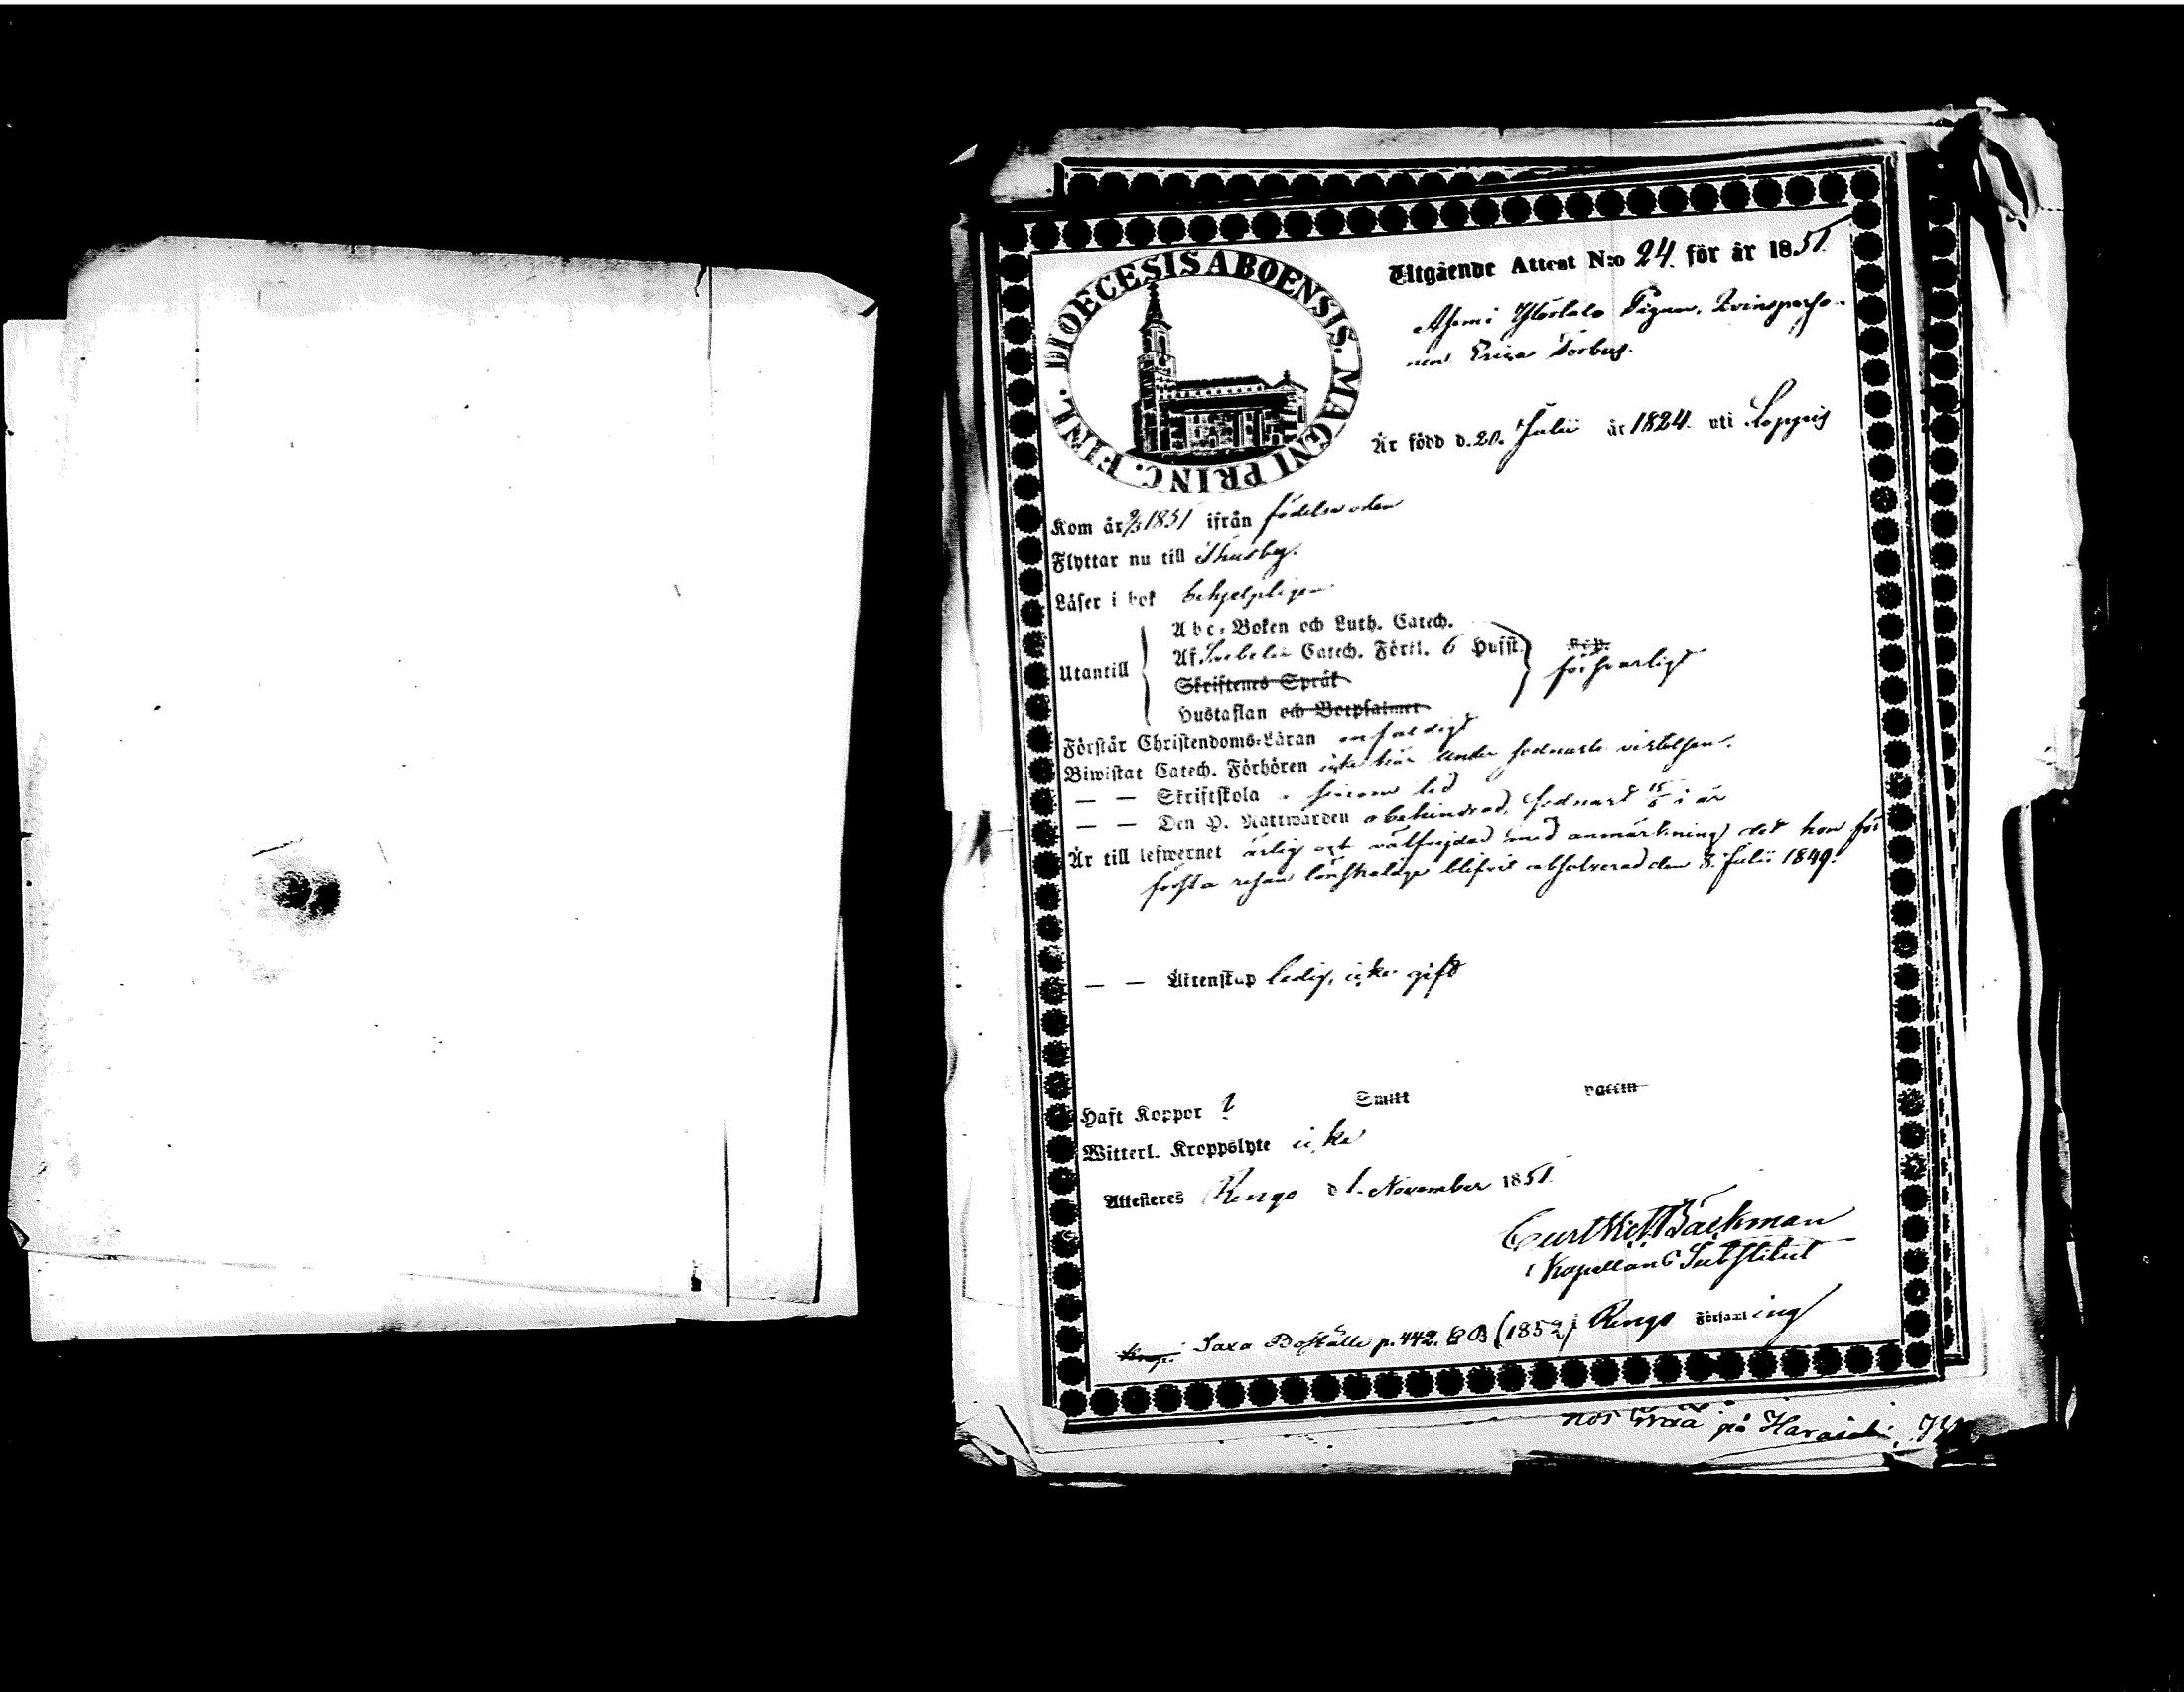 DIOECESIS ABOENSIS. MAGNI PRINC. FINL.
Utgående Attest N:o 24. för år 1851.
Pigan, Qvinsperso-
nen Erica
Är född d. 20. Julii år 1824. uti Loppis
Kom år 9/3 1851 ifrån födelseorten
Flyttar nu till Thusby.
Läser i bok behjelpligen
Utantill
Abc-Boken och Luth. Catech.
Af Svebelii Catech. Förkl. 6 Hufst.
Skriftenes Språk
Hustaflan och Botpsalmer
försvarligt
Förstår Christendoms-Läran enfaldigt
Biwistat Catech. Förhören icke här under sednaste vistelsen.
— — Skriftskola
— — Den H. Nattwarden obehindrad, sednast 15/6 i år
Är till lefwernet ärlig och välfrejdad med anmärkning det hon för
första resan lönskaläge blifvit absolverad den 8. Julii 1849.
— — Äktenskap ledig, icke gift
Haft Koppor ? Smitt Vaccin
Witterl. Kroppslyte icke
Attesteras Rengo d 1. November 1851.
Curt Bäckman
Kapellans Substitut
Saxa Boställe p. 442. (1852) i Rengo Församling
hos på